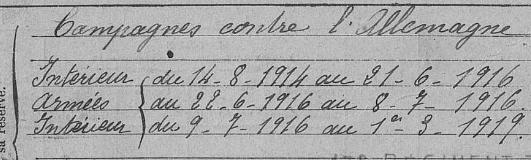 Campagnes contre l'Allemagne
Intérieur { du 14-8-1914 au 21-6-1916
Armées { au 22-6-1916 au 8-7-1916
Intérieur { du 9-7-1916 au 1er-3-1919.
sa réserve.